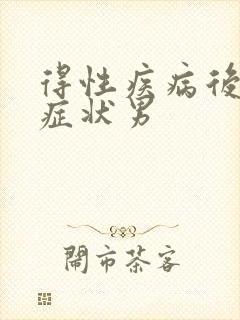 得性疾病後
症状男
闹市茶客